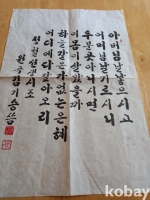 아버님날낳으시고
어머님날기르시니
두분곳아니시면
이몸이살았을까
하늘같은가없는은혜
어디에다갚아오리
정철선생시조
원곡김기승씀
kobay